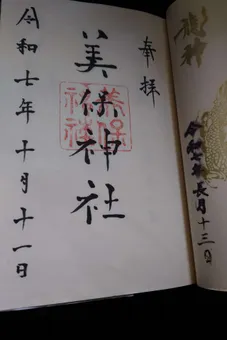 奉拝
美保神社
美保
神社
令和七年十月十一日
神
月十三日